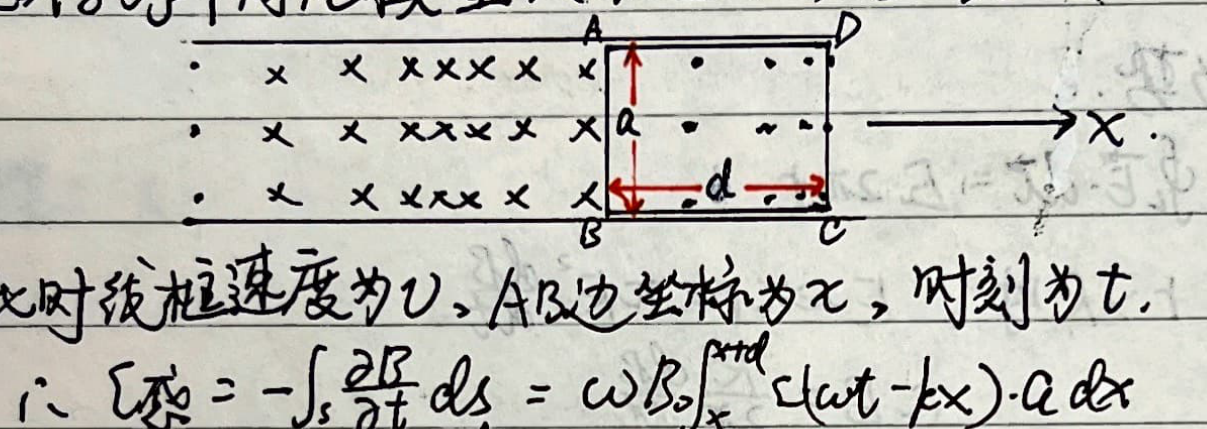 A D
× × × × × × ×
a
× × × × × × × x
d
× × × × × × ×
B C
时线框速度为v、AB边坐标为x,时刻为t.
∴ ε感 = -∫s ∂B/∂t ds = ωB₀∫ₓ^{x+d} s(ωt-kx)·a dx